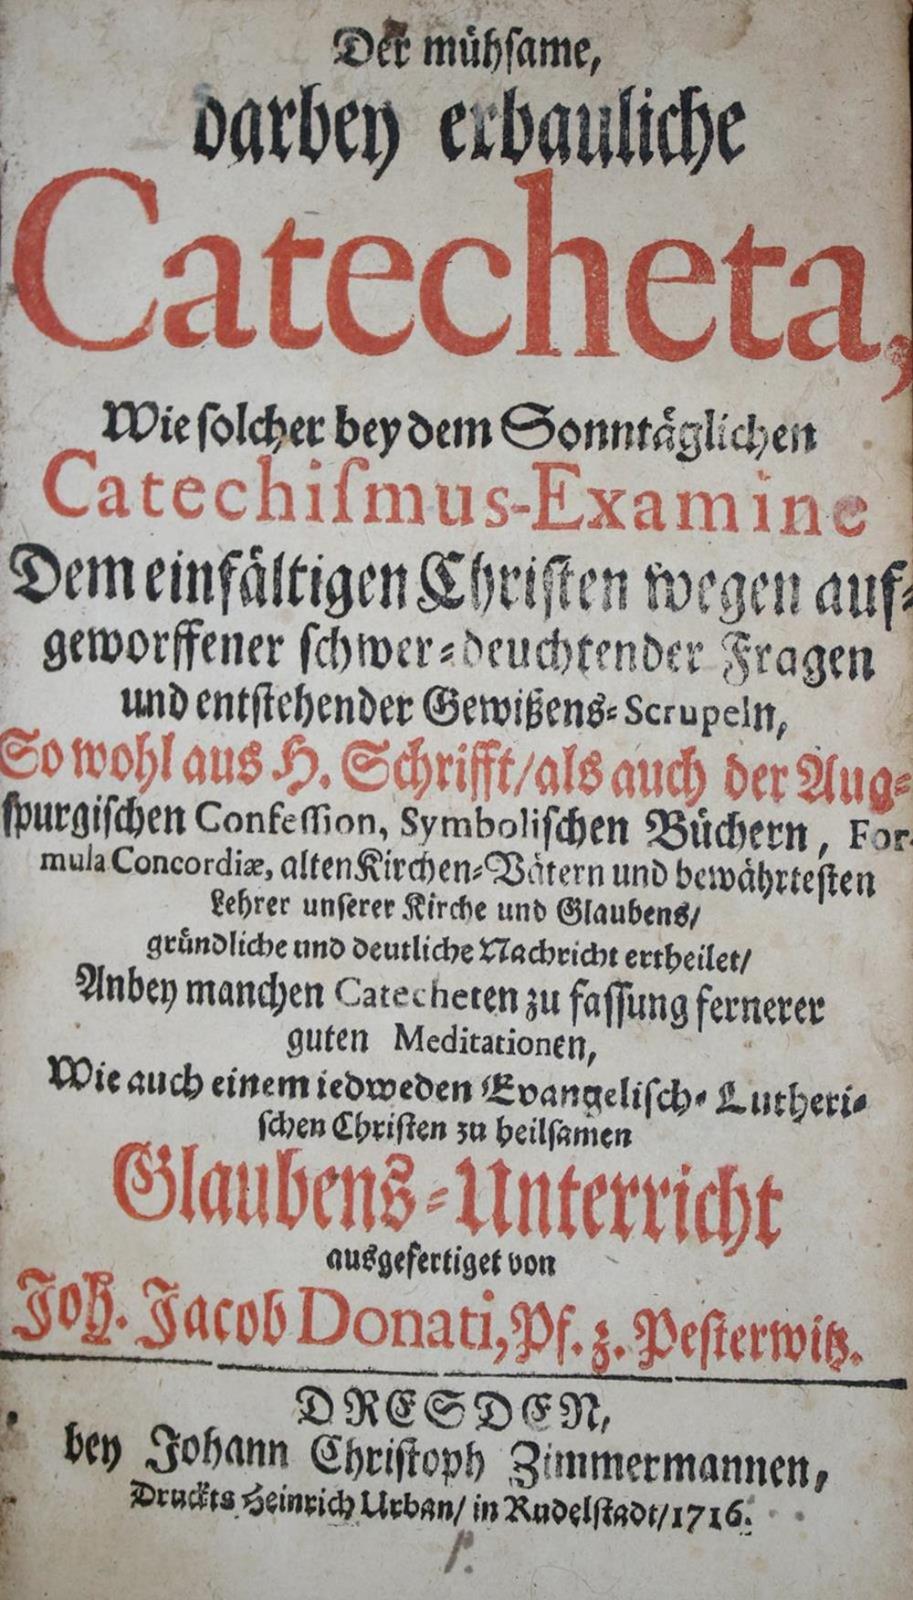 Der mühſame,
darbey erbauliche
Catecheta,
Wie ſolcher bey dem Sonntäglichen
Catechiſmus-Examine
Dem einfältigen Chriſten wegen auf-
geworffener ſchwer-deuchtender Fragen
und entſtehender Gewißens-Scrupeln,
So wohl aus H. Schrifft/als auch der Aug-
ſpurgiſchen Confeſſion, Symboliſchen Büchern, For-
mula Concordiæ, alten Kirchen-Vätern und bewährteſten
Lehrer unſerer Kirche und Glaubens/
gründliche und deutliche Nachricht ertheilet/
Anbey manchen Catecheten zu faſſung fernerer
guten Meditationen,
Wie auch einem iedweden Evangeliſch-Lutheri-
ſchen Chriſten zu heilſamen
Glaubens-Unterricht
ausgefertiget von
Joh. Jacob Donati, Pf. z. Peſterwitz.
DRESDEN,
bey Johann Chriſtoph Zimmermannen,
Druckts Heinrich Urban/ in Rudelſtadt/1716.